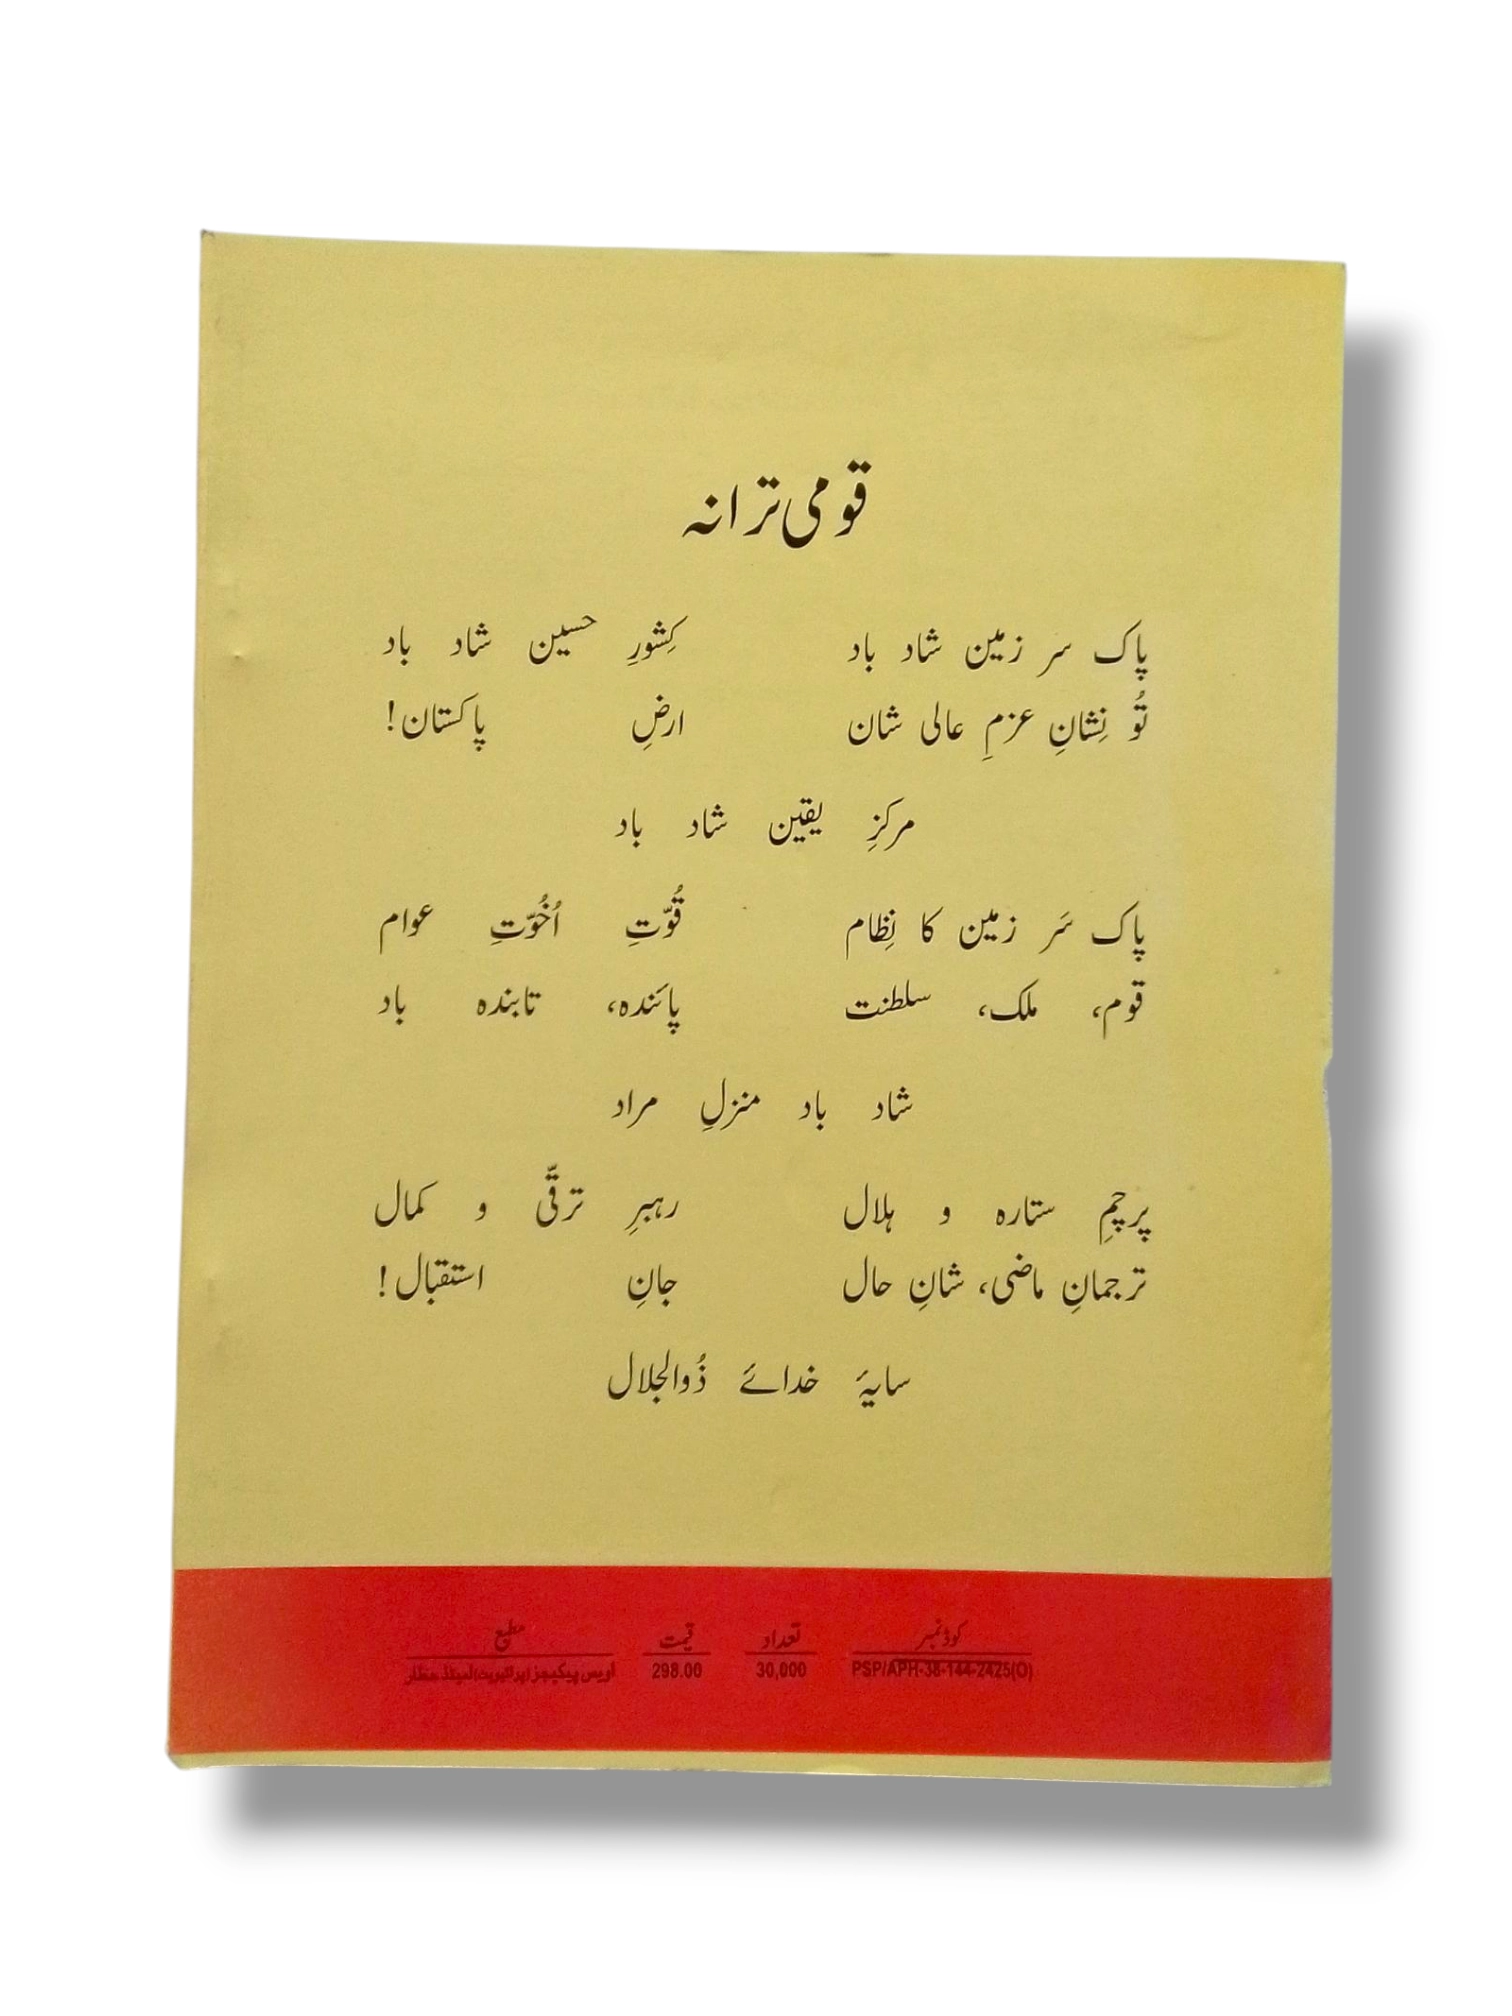 قومی ترانہ
پاک سر زمین شاد باد کِشورِ حسین شاد باد
تُو نِشانِ عزمِ عالی شان ارضِ پاکستان!
مرکزِ یقین شاد باد
پاک سَر زمین کا نِظام قُوّتِ اُخُوّتِ عوام
قوم، ملک، سلطنت پائندہ، تابندہ باد
شاد باد منزلِ مراد
پرچمِ ستارہ و ہلال رہبرِ ترقّی و کمال
ترجمانِ ماضی، شانِ حال جانِ استقبال!
سایۂ خدائے ذُوالجلال
کوڈ نمبر تعداد قیمت مطبع
PSP/APH-38-144-2425(O) 30,000 298.00 اویس پیکیجز (پرائیویٹ) لمیٹڈ